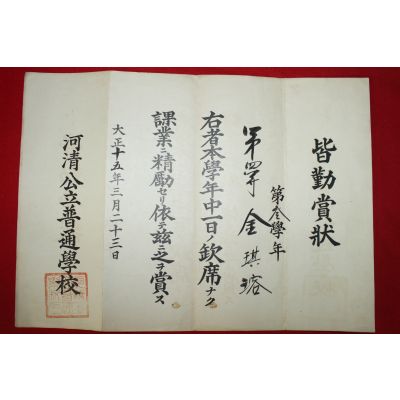 皆勤賞狀
第参學年
第四号 金琪瑢
右者本學年中一日ノ欽席ナク
課業ニ精勵セリ依テ茲ニ之ヲ賞ス
大正十五年三月二十三日
河清公立普通學校